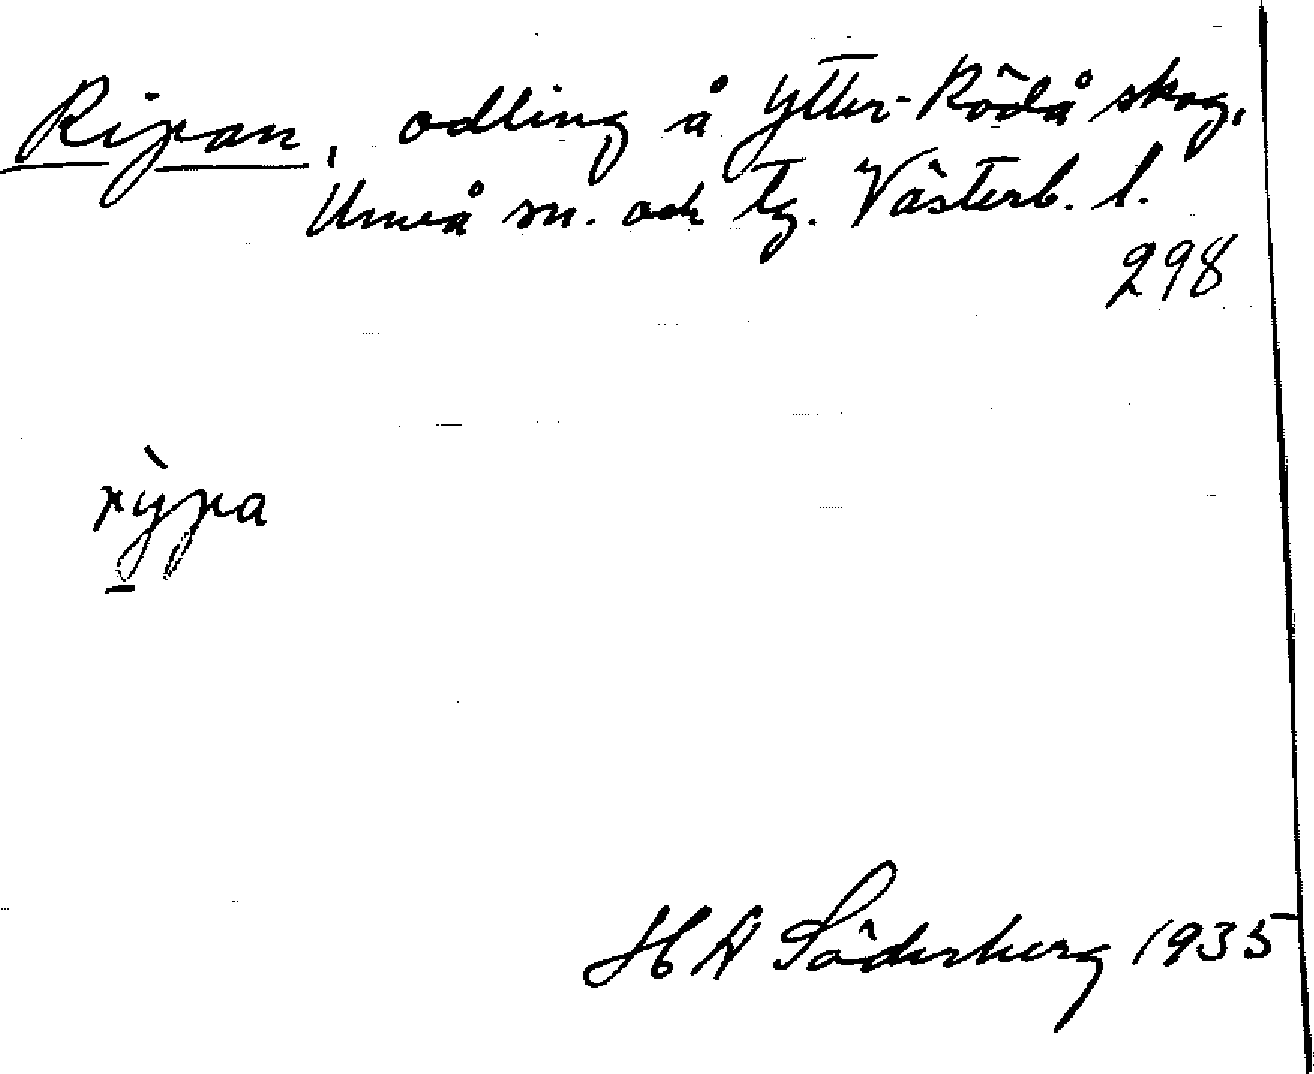 Ripan, odling å Ytter-Rödå skog,
Umeå sn. och tg. Västerb. l.
298
rỳpa
H A Söderberg 1935